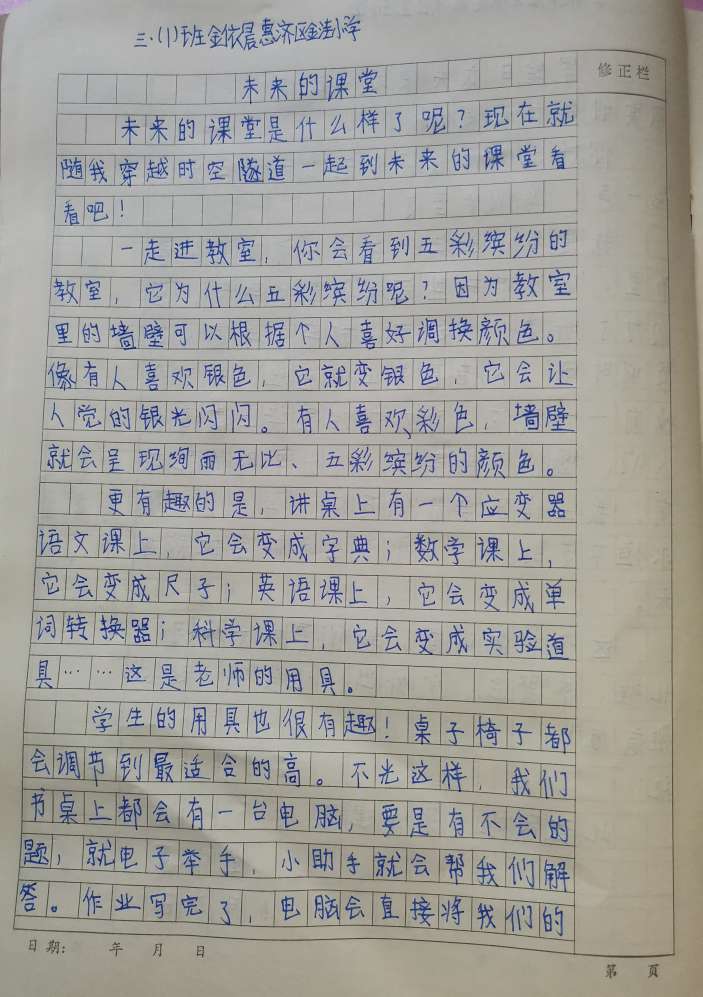 三.(1)班金依晨惠济区金洼小学
修正栏
未来的课堂
未来的课堂是什么样了呢?现在就
随我穿越时空隧道一起到未来的课堂看
看吧!
一走进教室,你会看到五彩缤纷的
教室,它为什么五彩缤纷呢?因为教室
里的墙壁可以根据个人喜好调换颜色。
像有人喜欢银色,它就变银色,它会让
人觉的银光闪闪。有人喜欢彩色,墙壁
就会呈现绚丽无比、五彩缤纷的颜色。
更有趣的是,讲桌上有一个应变器
语文课上,它会变成字典;数学课上,
它会变成尺子;英语课上,它会变成单
词转换器;科学课上,它会变成实验道
具……这是老师的用具。
学生的用具也很有趣!桌子椅子都
会调节到最适合的高。不光这样,我们
书桌上都会有一台电脑,要是有不会的
题,就电子举手,小助手就会帮我们解
答。作业写完了,电脑会直接将我们的
日期: 年 月 日
第 页